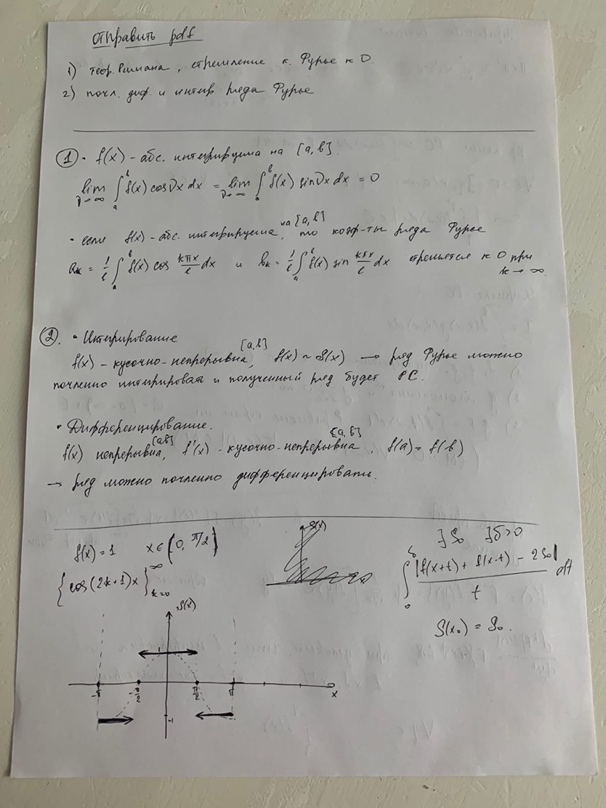 отправить pdf
1) теор. Римана, стремление к. Фурье к 0
2) почл. диф. и интегр ряда Фурье
① • f(x) - абс. интегрируема на [a, b]
lim_{ν→∞} ∫_a^b f(x) cos νx dx = lim_{ν→∞} ∫_a^b f(x) sin νx dx = 0
• если f(x) - абс. интегрируема на [a, b], то коэф-ты ряда Фурье
a_k = 1/l ∫_a^b f(x) cos kπx/l dx и b_k = 1/l ∫_a^b f(x) sin kπx/l dx стремятся к 0 при k → ∞.
②. • Интегрирование
f(x) - кусочно-непрерывна [a, b], f(x) ~ S(x) → ряд Фурье можно
почленно интегрировать и полученный ряд будет РС.
• Дифференцирование.
f(x) непрерывна [a, b], f'(x) - кусочно-непрерывна [a, b], f(a) = f(b)
→ ряд можно почленно дифференцировать.
f(x) = 1 x ∈ (0, π/2)
{cos(2k+1)x}_{k=0}^∞
S(x)
∃ S₀ ∃ δ>0
∫_0^δ |f(x+t) + f(x-t) - 2S₀| / t dt
S(x₀) = S₀.
S(x)
1
-π -π/2 π/2 π x
-1